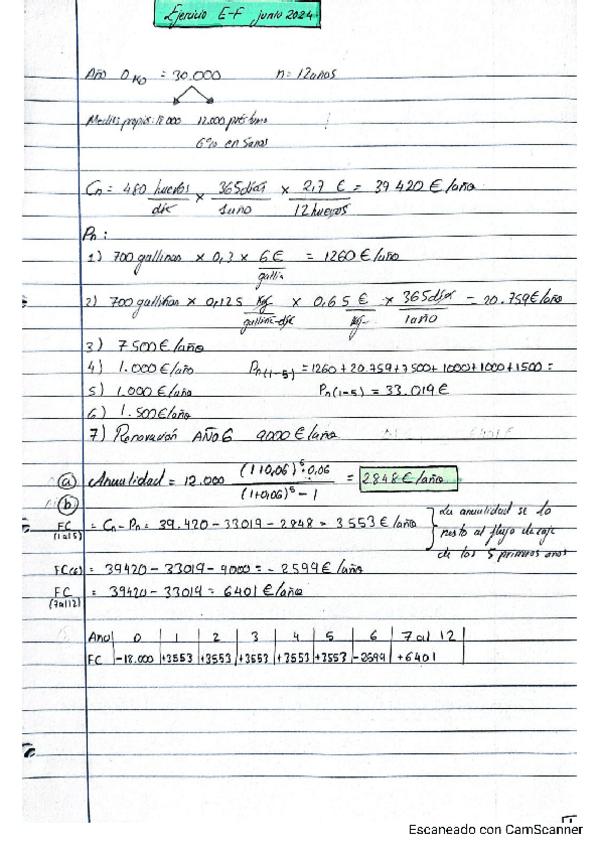 Ejercicio E-F junio 2024
Año 0 Ko = 30.000 n = 12 años
Medios propios: 18.000 12.000 préstamo
6% en 5 años
Cn = 480 huevos/día × 365 días/1 año × 2,7 €/12 huevos = 39 420 €/año
Pn:
1) 700 gallinas × 0,3 × 6 €/gallina = 1260 €/año
2) 700 gallinas × 0,125 kg/gallina-día × 0,65 €/kg × 365 días/1 año = 20.759 €/año
3) 7500 €/año
4) 1.000 €/año Pn(1-5) = 1260 + 20.759 + 7500 + 1000 + 1000 + 1500 =
5) 1.000 €/año Pn(1-5) = 33.019 €
6) 1.500 €/año
7) Renovación AÑO 6 9000 €/año
a) Anualidad = 12.000 (1+0,06)^5·0,06/(1+0,06)^5 – 1 = 2848 €/año
b)
FC (1 al 5) = Cn - Pn = 39.420 - 33019 - 2848 = 3553 €/año
La anualidad se lo resto al flujo de caja de los 5 primeros años
FC(6) = 39420 - 33019 - 9000 = - 2599 €/año
FC (7 al 12) = 39420 - 33019 = 6401 €/año
Año 0 1 2 3 4 5 6 7 al 12
FC -18.000 +3553 +3553 +3553 +3553 +3553 -2599 +6401
1
Escaneado con CamScanner